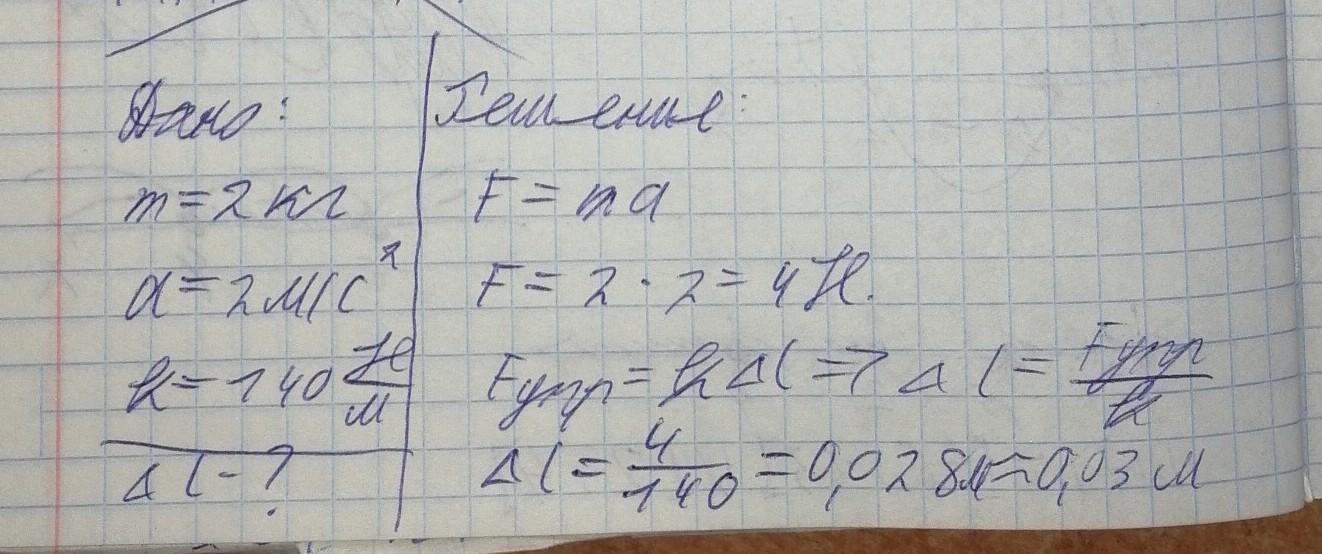 Дано:
m = 2 кг
a = 2 м/с²
k = 140 Н/м
Δl - ?
Решение:
F = ma
F = 2 · 2 = 4 Н.
Fупр = kΔl => Δl = Fупр/k
Δl = 4/140 = 0,028м ≈ 0,03 м